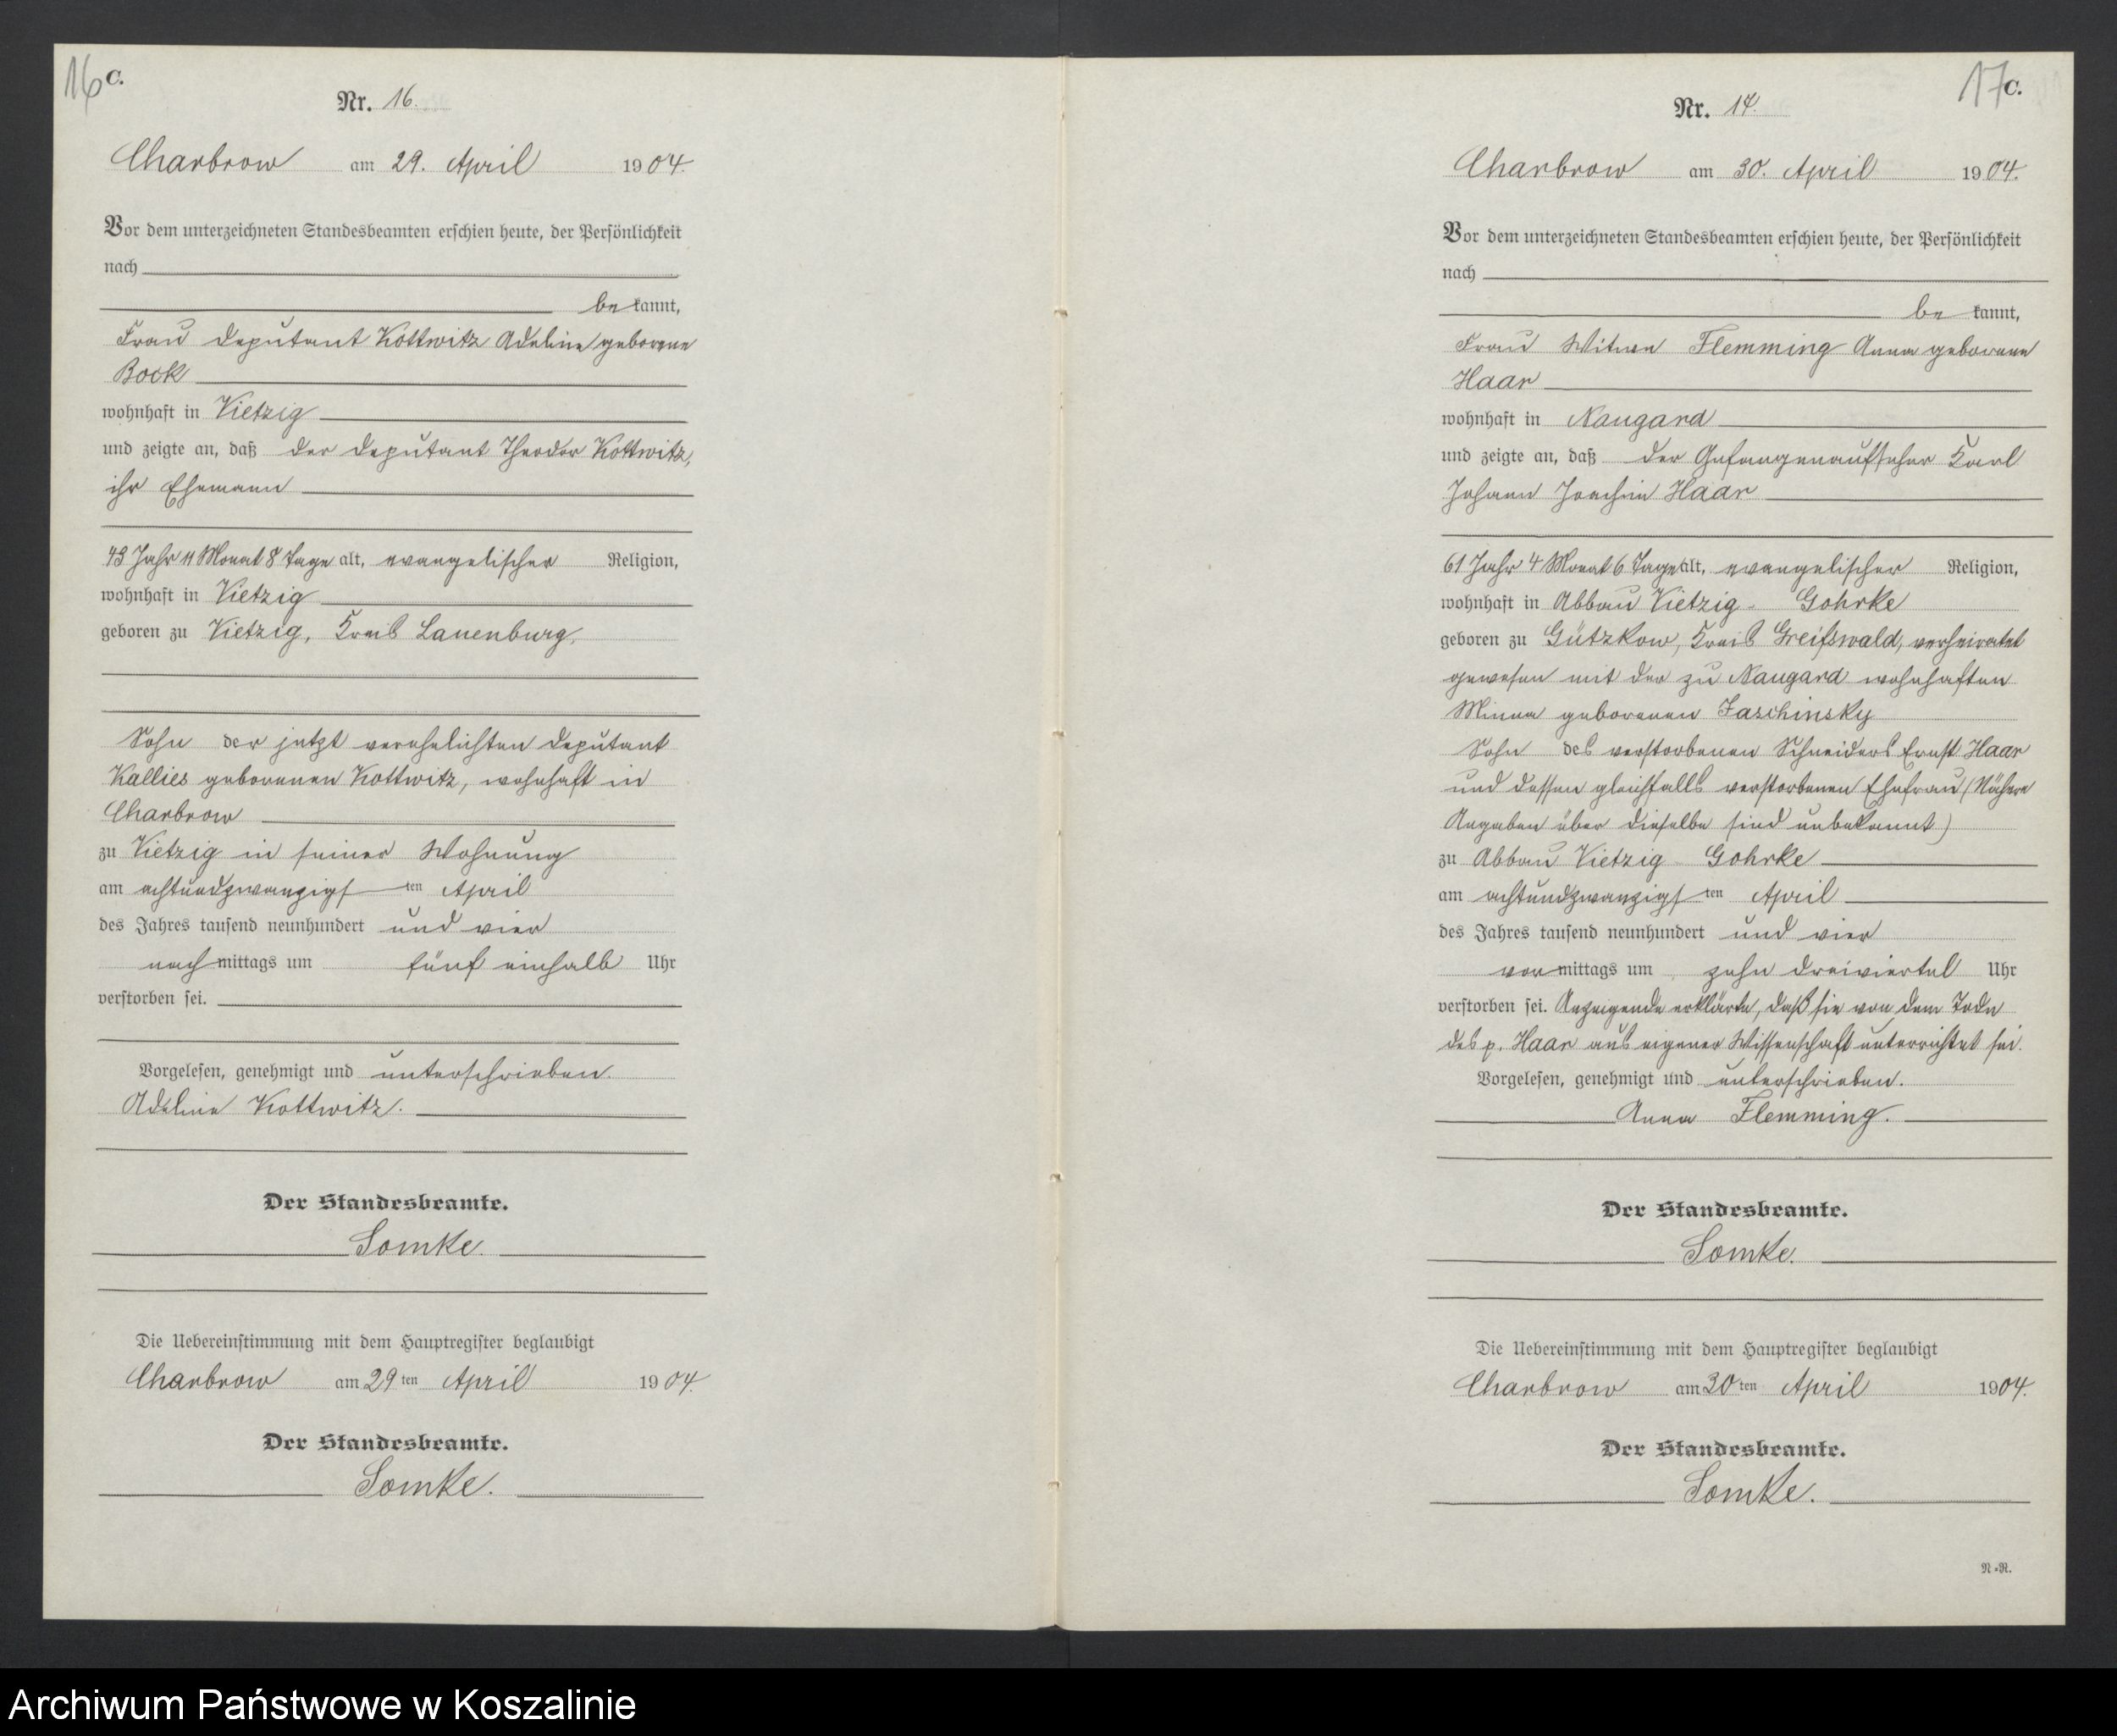 16 C.
Nr. 16.
Charbrow am 29. April 1904.
Vor dem unterzeichneten Standesbeamten erschien heute, der Persönlichkeit
nach
bekannt,
Frau Deputant Kottwitz Adeline geborene
Bock
wohnhaft in Vietzig
und zeigte an, daß der Deputant Theodor Kottwitz,
ihr Ehemann
43 Jahr 11 Monat 8 Tage alt, evangelischer Religion,
wohnhaft in Vietzig
geboren zu Vietzig, Kreis Lauenburg,
Sohn der jetzt verehelichten Deputant
Kallies geborenen Kottwitz, wohnhaft in
Charbrow
zu Vietzig in seiner Wohnung
am achtundzwanzigsten April
des Jahres tausend neunhundert und vier
nachmittags um fünf einhalb Uhr
verstorben sei.
Vorgelesen, genehmigt und unterschrieben.
Adeline Kottwitz.
Der Standesbeamte.
Somke.
Die Uebereinstimmung mit dem Hauptregister beglaubigt
Charbrow am 29ten April 1904.
Der Standesbeamte.
Somke.
17 C.
Nr. 17.
Charbrow am 30. April 1904.
Vor dem unterzeichneten Standesbeamten erschien heute, der Persönlichkeit
nach
bekannt,
Frau Witwe Flemming Anna geborene
Haar
wohnhaft in Naugard
und zeigte an, daß der Gefangenaufseher Karl
Johann Joachim Haar
61 Jahr 4 Monat 6 Tage alt, evangelischer Religion,
wohnhaft in Abbau Vietzig - Gohrke
geboren zu Gützkow, Kreis Greifswald, verheiratet
gewesen mit der zu Naugard wohnhaften
Minna geborenen Jaschinsky
Sohn des verstorbenen Schneiders Ernst Haar
und dessen gleichfalls verstorbenen Ehefrau (Nähere
Angaben über dieselbe sind unbekannt)
zu Abbau Vietzig Gohrke
am achtundzwanzigsten April
des Jahres tausend neunhundert und vier
vormittags um zehn dreiviertel Uhr
verstorben sei. Anzeigende erklärte, daß sie von dem Tode
des p. Haar aus eigener Wissenschaft unterrichtet sei.
Vorgelesen, genehmigt und unterschrieben.
Anna Flemming.
Der Standesbeamte.
Somke.
Die Uebereinstimmung mit dem Hauptregister beglaubigt
Charbrow am 30ten April 1904.
Der Standesbeamte.
Somke.
N.-R.
Archiwum Państwowe w Koszalinie